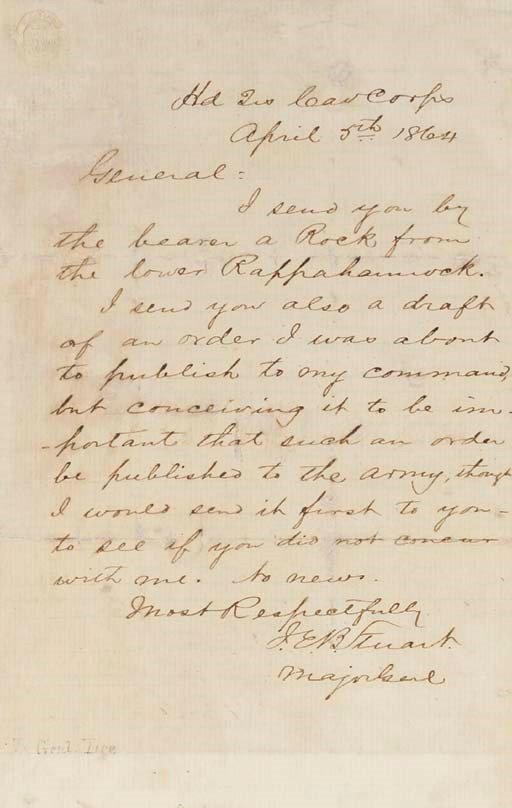 Hd Qrs Cav Corps
April 5th 1864
General:
I send you by
the bearer a Rock from
the lower Rappahannock.
I send you also a draft
of an order I was about
to publish to my command,
but conceiving it to be im-
-portant that such an order
be published to the army, thought
I would send it first to you-
to see if you did not concur
with me. No news.
Most Respectfully
J.E.B. Stuart.
Major Genl
To Genl. Lee